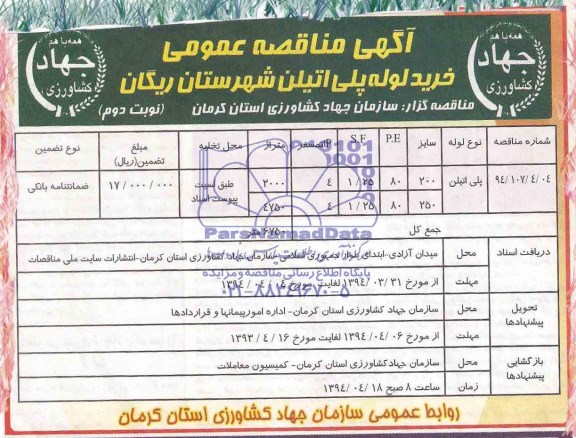 همه با هم
جهاد
کشاورزی
آگهی مناقصه عمومی
خرید لوله پلی اتیلن شهرستان ریگان
مناقصه گزار: سازمان جهاد کشاورزی استان کرمان (نوبت دوم)
همه با هم
جهاد
کشاورزی
شماره مناقصه نوع لوله سایز P.E S.F اتمسفر متراژ محل تخلیه مبلغ تضمین(ریال) نوع تضمین
۹۴/۱۰۷/۴/۰۴ پلی اتیلن ۲۰۰ ۸۰ ۱/۲۵ ۴ ۲۰۰۰ طبق لیست پیوست اسناد ۱۷/۰۰۰/۰۰۰ ضمانتنامه بانکی
۲۵۰ ۸۰ ۱/۲۵ ۴ ۴۷۵۰
جمع کل ۶۷۵۰ متر
دریافت اسناد محل میدان آزادی-ابتدای بلوار جمهوری اسلامی-سازمان جهاد کشاورزی استان کرمان-انتشارات سایت ملی مناقصات
مهلت از مورخ ۱۳۹۴/۰۳/۳۱ لغایت مورخ ۱۳۹۴/۰۴/۰۴
تحویل پیشنهادها محل سازمان جهاد کشاورزی استان کرمان- اداره امور پیمانها و قراردادها
مهلت از مورخ ۱۳۹۴/۰۴/۰۶ لغایت مورخ ۱۳۹۳/۰۴/۱۶
بازگشایی پیشنهادها محل سازمان جهاد کشاورزی استان کرمان- کمیسیون معاملات
زمان ساعت ۸ صبح ۱۳۹۴/۰۴/۱۸
روابط عمومی سازمان جهاد کشاورزی استان کرمان
ParsNamadData
پایگاه اطلاع رسانی مناقصه و مزایده
۰۲۱-۸۸۳۴۹۶۷۰-۵